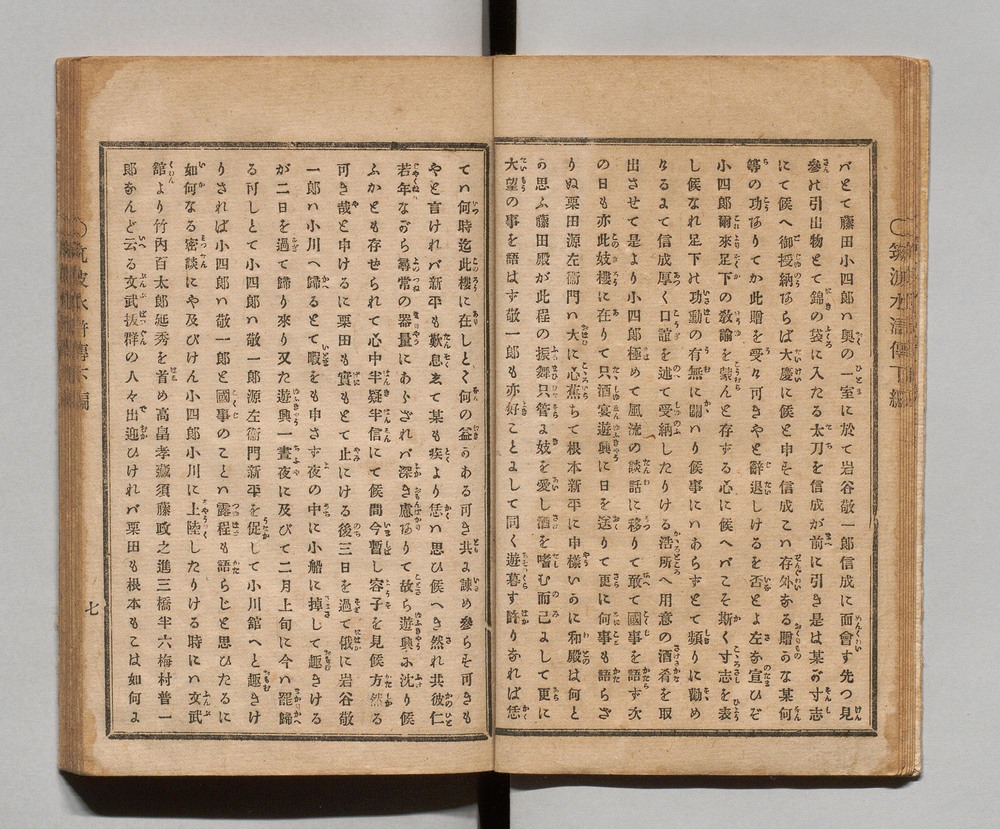 バとて藤田小四郎ハ奥の一室に於て岩谷敬一郎信成に面會す先つ見
參の引出物とて錦の袋に入たる太刀を信成が前に引き是は某が寸志
にて候へ御授納あらば大慶に候と申を信成こハ存外なる贈りの某何
等の功ありてか此贈を受く可きやと辭退しけるを否とよ左な宣ひぞ
小四郎爾來足下の敎諭を蒙んと存する心に候へバこそ斯く寸志を表
し候なれ足下の功勳の有無に關ハり候事にハあらずとて頻りに勸め
けるまて信成厚く口誼を述て受納したりける浩所へ用意の酒肴を取
出させて是より小四郎極めて風流の談話に移りて敢て國事を語ず次
の日も亦此妓樓に在りて只酒宴遊興に日を送りて更に何事も語らざ
りぬ栗田源左衞門ハ大に心焦ちて根本新平に申樣いかに和殿は何と
か思ふ藤田殿が此程の振舞只管ま妓を愛し酒を嗜む而己よして更に
大望の事を語はず敬一郎も亦好ことよして同く遊暮す許りなれば恁
てハ何時迄此樓に在しとく何の益かある可き共ま諫め參らそ可きも
やと言けれバ新平も歎息まて某も疾より恁ハ思ひ候へき然れ共彼仁
若年ながら尋常の器量にあらざれバ深き慮ありて故ら遊興ま沈り候
ふかとも存せられて心中半疑半信にて候間今暫し容子を見候方然る
可き哉と申けるに栗田も實もとて止にける後三日を過て俄に岩谷敬
一郎ハ小川へ歸るとて暇をも申さず夜の中に小船に掉して趣きける
が二日を過て歸り來り又た遊興一晝夜に及びて二月上旬に今ハ罷歸
る可しとて小四郎ハ敬一郎源左衞門新平を促して小川館へと趣きけ
りされば小四郎ハ敬一郎と國事のことハ露程も語らじと思ひたるに
如何なる密談にや及びけん小四郎小川に上陸したりける時にハ文武
館より竹内百太郎延秀を首め高畠孝藏須藤政之進三橋半六梅村普一
郎なんど云る文武拔群の人々出迎ひけれバ栗田も根本もこは如何よ
七